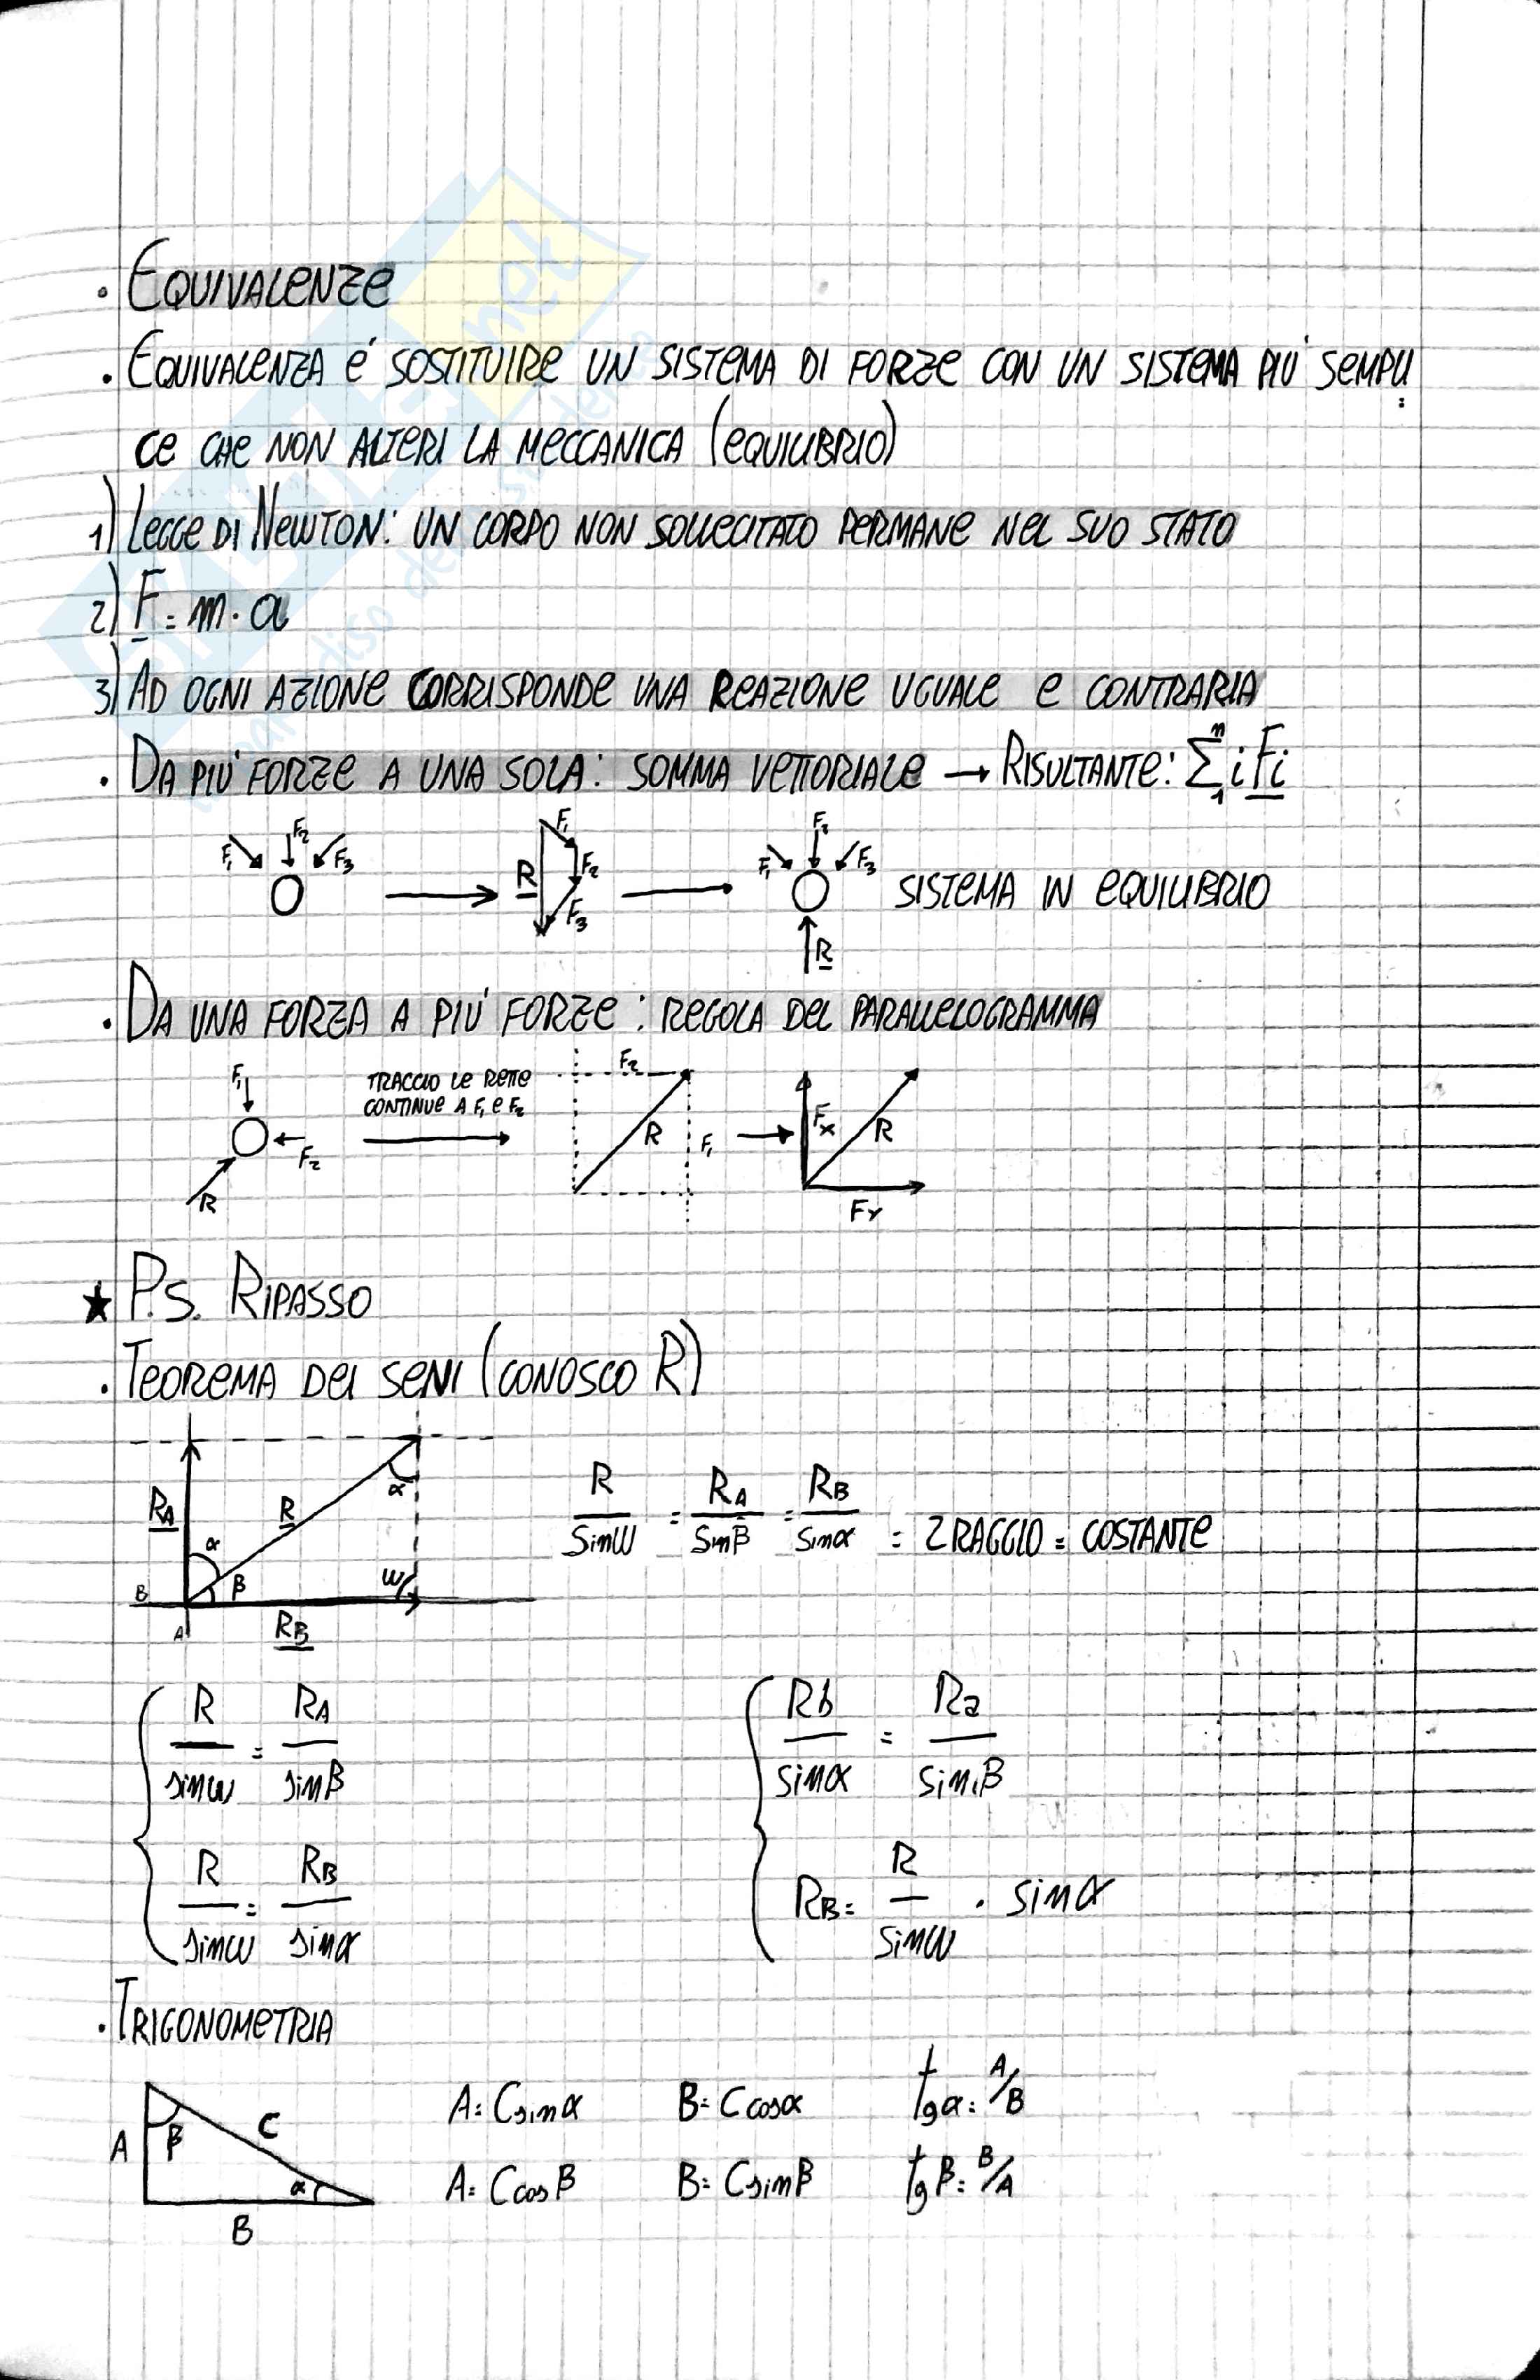 • EQUIVALENZE
• EQUIVALENZA é SOSTITUIRE UN SISTEMA DI FORZE CON UN SISTEMA PIÙ SEMPLI
CE CHE NON ALTERI LA MECCANICA (EQUILIBRIO)
1) LEGGE DI NEWTON: UN CORPO NON SOLLECITATO PERMANE NEL SUO STATO
2) F = m · a
3) AD OGNI AZIONE CORRISPONDE UNA REAZIONE UGUALE E CONTRARIA
• DA PIÙ FORZE A UNA SOLA: SOMMA VETTORIALE → RISULTANTE: Σ₁ⁿ i Fi
F₁ F₂ F₃ → R F₁ F₂ F₃ → F₁ F₂ F₃ R SISTEMA IN EQUILIBRIO
• DA UNA FORZA A PIÙ FORZE: REGOLA DEL PARALLELOGRAMMA
F₁ F₂ R
TRACCIO LE RETTE
CONTINUE A F₁ E F₂
F₂ R F₁ → Fx R Fy
★ P.S. RIPASSO
• TEOREMA DEI SENI (CONOSCO R)
RA R α α β ω B A RB
R/sinω = RA/sinβ = RB/sinα = 2 RAGGIO = COSTANTE
R/sinω = RA/sinβ
R/sinω = RB/sinα
Rb/sinα = Ra/sinβ
RB = R/sinω · sinα
• TRIGONOMETRIA
A β C α B
A = C sinα B = C cosα tgα = A/B
A = C cosβ B = C sinβ tgβ = B/A